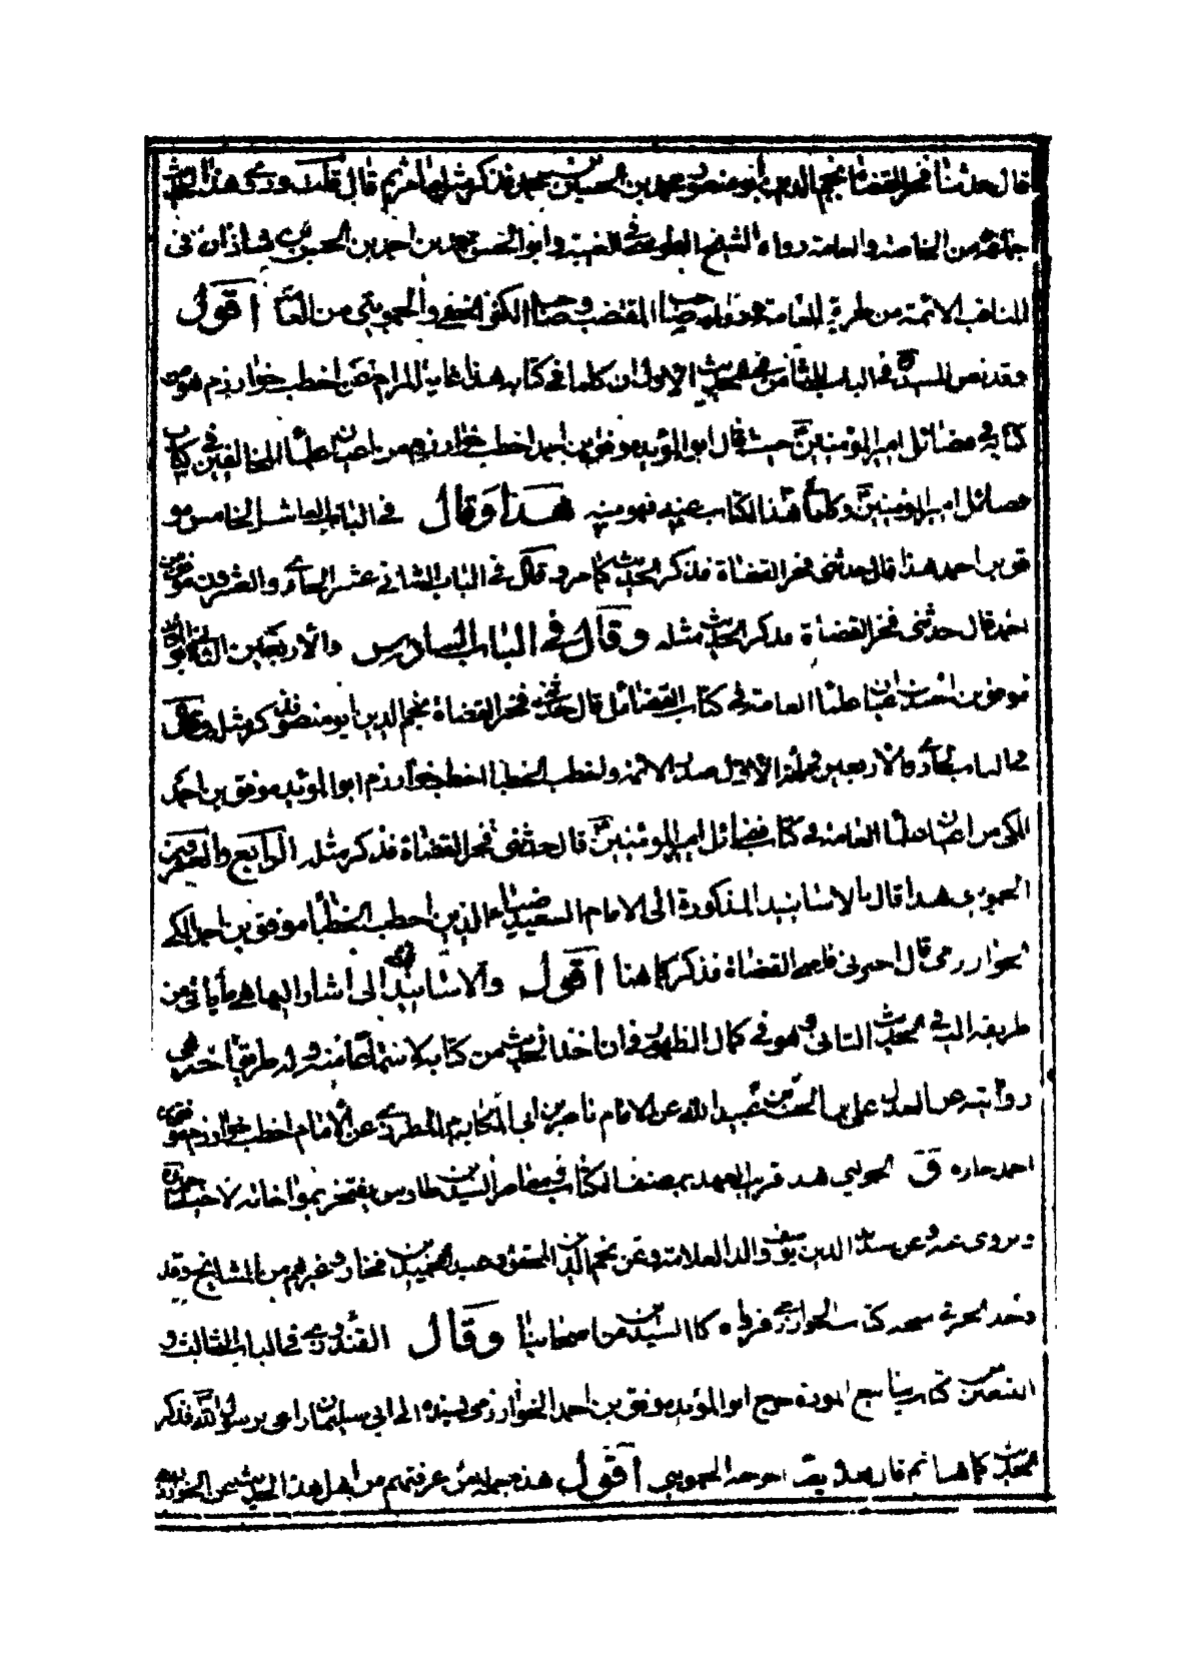 قال حدثنا فخر القضاة نجم الدين أبو منصور محمد بن الحسين بن محمد فذكر مثل ما مر ثم قال قلت وروى هذا الحديث
جماعة من الخاصة والعامة رواه الشيخ الطوسي في الغيبة وابو الحسن محمد بن احمد بن الحسن بن شاذان فى
المناقب الائمة من طريق العامة ورواه صاحب المقتضب وصاحب الكنز الخفي والحموينى من العامة اقول
وقد نص السيد في الباب الثامن في الحديث الاول ان كلما في كتابه هذا غاية المرام عن اخطب خوارزم هو من
كتابه في فضائل امير المؤمنين حيث قال ابو المؤيد موفق بن احمد اخطب خوارزم من اعيان علماء المخالفين في كتاب
فضائل امير المؤمنين وكلما هذا الكتاب عنه فهو منه هذا وقال في الباب العاشر الخامس مو
فق بن احمد هذا قال حدثنى فخر القضاة فذكر الحديث كما مر وقال في الباب الثاني عشر الحادي والعشرون موفق بن
احمد قال حدثنى فخر القضاة فذكر الحديث مثله وقال في الباب السادس والاربعين الثاني ابو المؤيد
موفق بن احمد من اعيان علماء العامة في كتاب الفضائل قال حدثني فخر القضاة نجم الدين ابو منصور فذكر مثله وقال
في الباب الحادي والاربعين الاول صدر الائمة واخطب الخطباء اخطب خوارزم ابو المؤيد موفق بن احمد
المكي من اعيان علماء العامة في كتاب فضائل امير المؤمنين قال حدثنى فخر القضاة فذكر مثله الرابع والعشرون
الحموينى هذا قال بالاسانيد المذكورة الى الامام السعيد ضياء الدين اخطب الخطباء موفق بن احمد المكي
الخوارزمى قال اخبرنى قاضى القضاة فذكر كما هنا اقول والاسانيد التي اشار اليها هي ما يأتي من
طريقه الى في الحديث الثانى وهو في كمال الظهور في ان اخذ الحديث من كتابه لا سماعا منه وله طريق اخر هى
روايته عن العدل على بن الحسن بن عبيد الله عن الامام ناصر بن ابى المكارم المطرزي عن الامام اخطب خوارزم موفق بن
احمد الحمويني هذ قريب العهد بمصنف الكتاب في معاصر السيد بن طاوس
ويروى عنه وعن سديد الدين يوسف والد العلامة وعن نجم الدين المحقق وعبد الحميد بن فخار وغيرهم من المشايخ وقد
كتاب الخوارزمي كالسيد بن من اصحابنا وقال القندوزي في الباب الثالث و
التسعين كتابه ينابيع المودة خرج ابو المؤيد موفق بن احمد الخوارزمى بسنده الى ابى سليمان راعى رسول الله فذكر
الحديث كما هنا ثم قال اخرجه الحمويني اقول هذه جملة من عرفتهم من اهل هذا الحديث